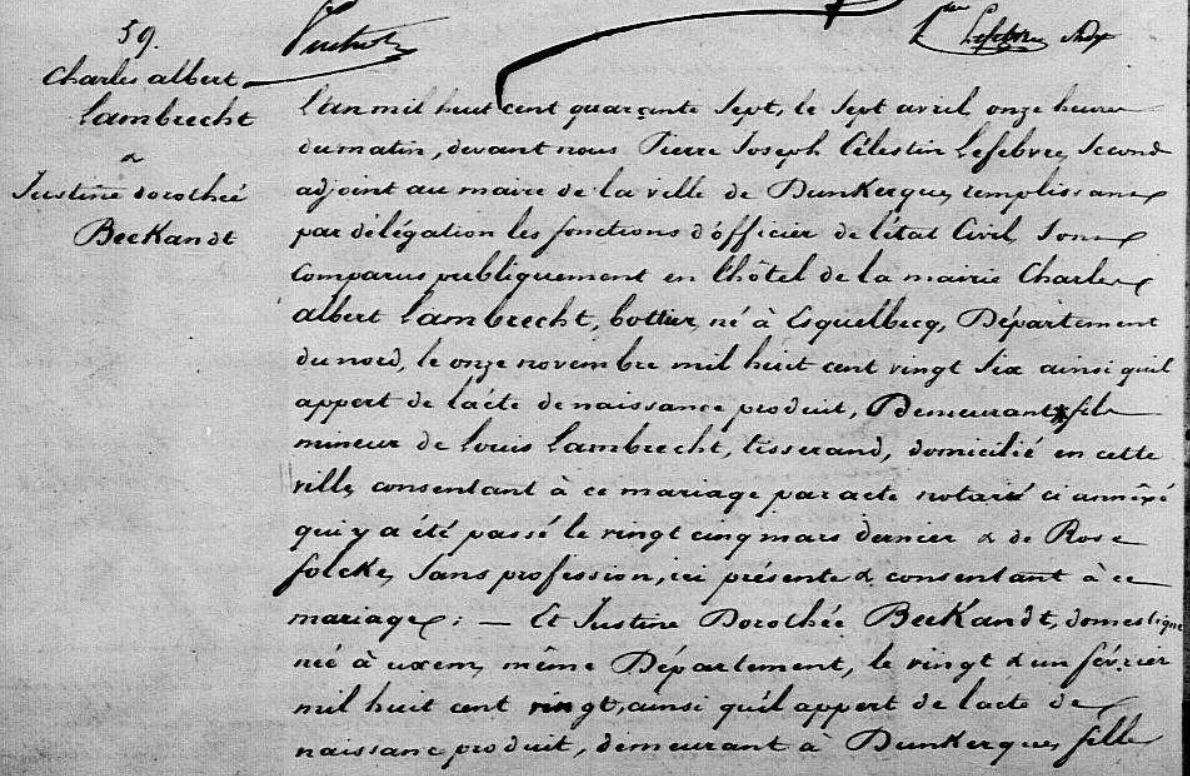 59.
Charles albert
Lambrecht
&
Justine dorothée
Beckandt
Lefebvre adj
L'an mil huit cent quarante Sept, le Sept avril, onze heures
du matin, devant nous Pierre Joseph Célestin Lefebvre, Second
adjoint au maire de la ville de Dunkerque, remplissant
par délégation les fonctions d'officier de l'état Civil, Sont
Comparus publiquement en l'hôtel de la mairie Charles
albert Lambrecht, bottier, né à Esquelbecq, Département
du nord, le onze novembre mil huit cent vingt Six ainsi qu'il
appert de l'acte de naissance produit, Demeurant * fils
mineur de Louis Lambrecht, tisserand, domicilié en cette
ville, consentant à ce mariage par acte notarié ci annéxé
qui y a été passé le vingt cinq mars dernier & de Rose
folcke, Sans profession, ici présente & consentant à ce
mariage; — Et Justine Dorothée Beckandt, domestique
née à uxem, même Département, le vingt & un février
mil huit cent vingt, ainsi qu'il appert de l'acte de
naissance produit, demeurant à Dunkerque, fille